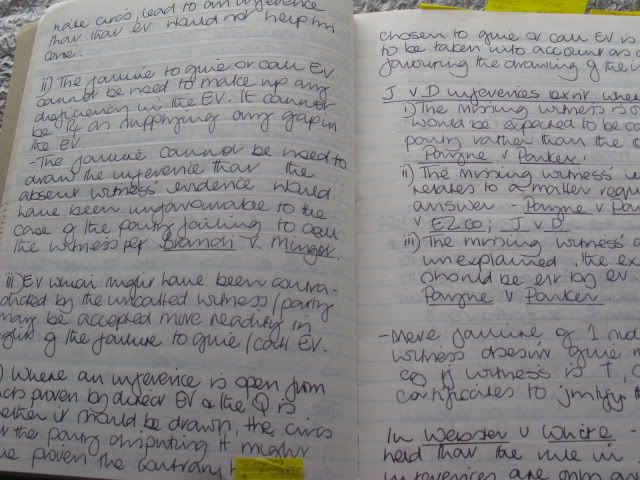 naire circs, lead to an inference
that that ev would not help his
case.
ii) The failure to give or call EV
cannot be used to make up any
deficiency in the EV. It cannot
be as supplying any gap in
the EV.
- The failure cannot be used to
draw the inference that the
absent witness' evidence would
have been unfavourable to the
case of the party failing to call
the witness per Brandi v. Mingot.
iii) EV which might have been contra-
dicted by the uncalled witness/party
may be accepted more readily in
light of the failure to give/call EV.
) Where an inference is open from
facts proven by direct EV & the Q is
whether it should be drawn, the circs
the party disputing it might
proven the contrary
chosen to give or call EV is
to be taken into account as
favouring the drawing of the
J v D inferences exist where
i) The missing witness is
would be expected to be
party rather than the
Payne v Parker.
ii) The missing witness'
relates to a matter
answer - Payne v
v EZ Co; J v D
iii) The missing witness'
unexplained, the
should be est by ev.
Payne v Parker.
- Mere failure of 1
witness doesn't give
eg if witness is
certificates to justify
In Webster v White -
held that the rule in
inferences are only